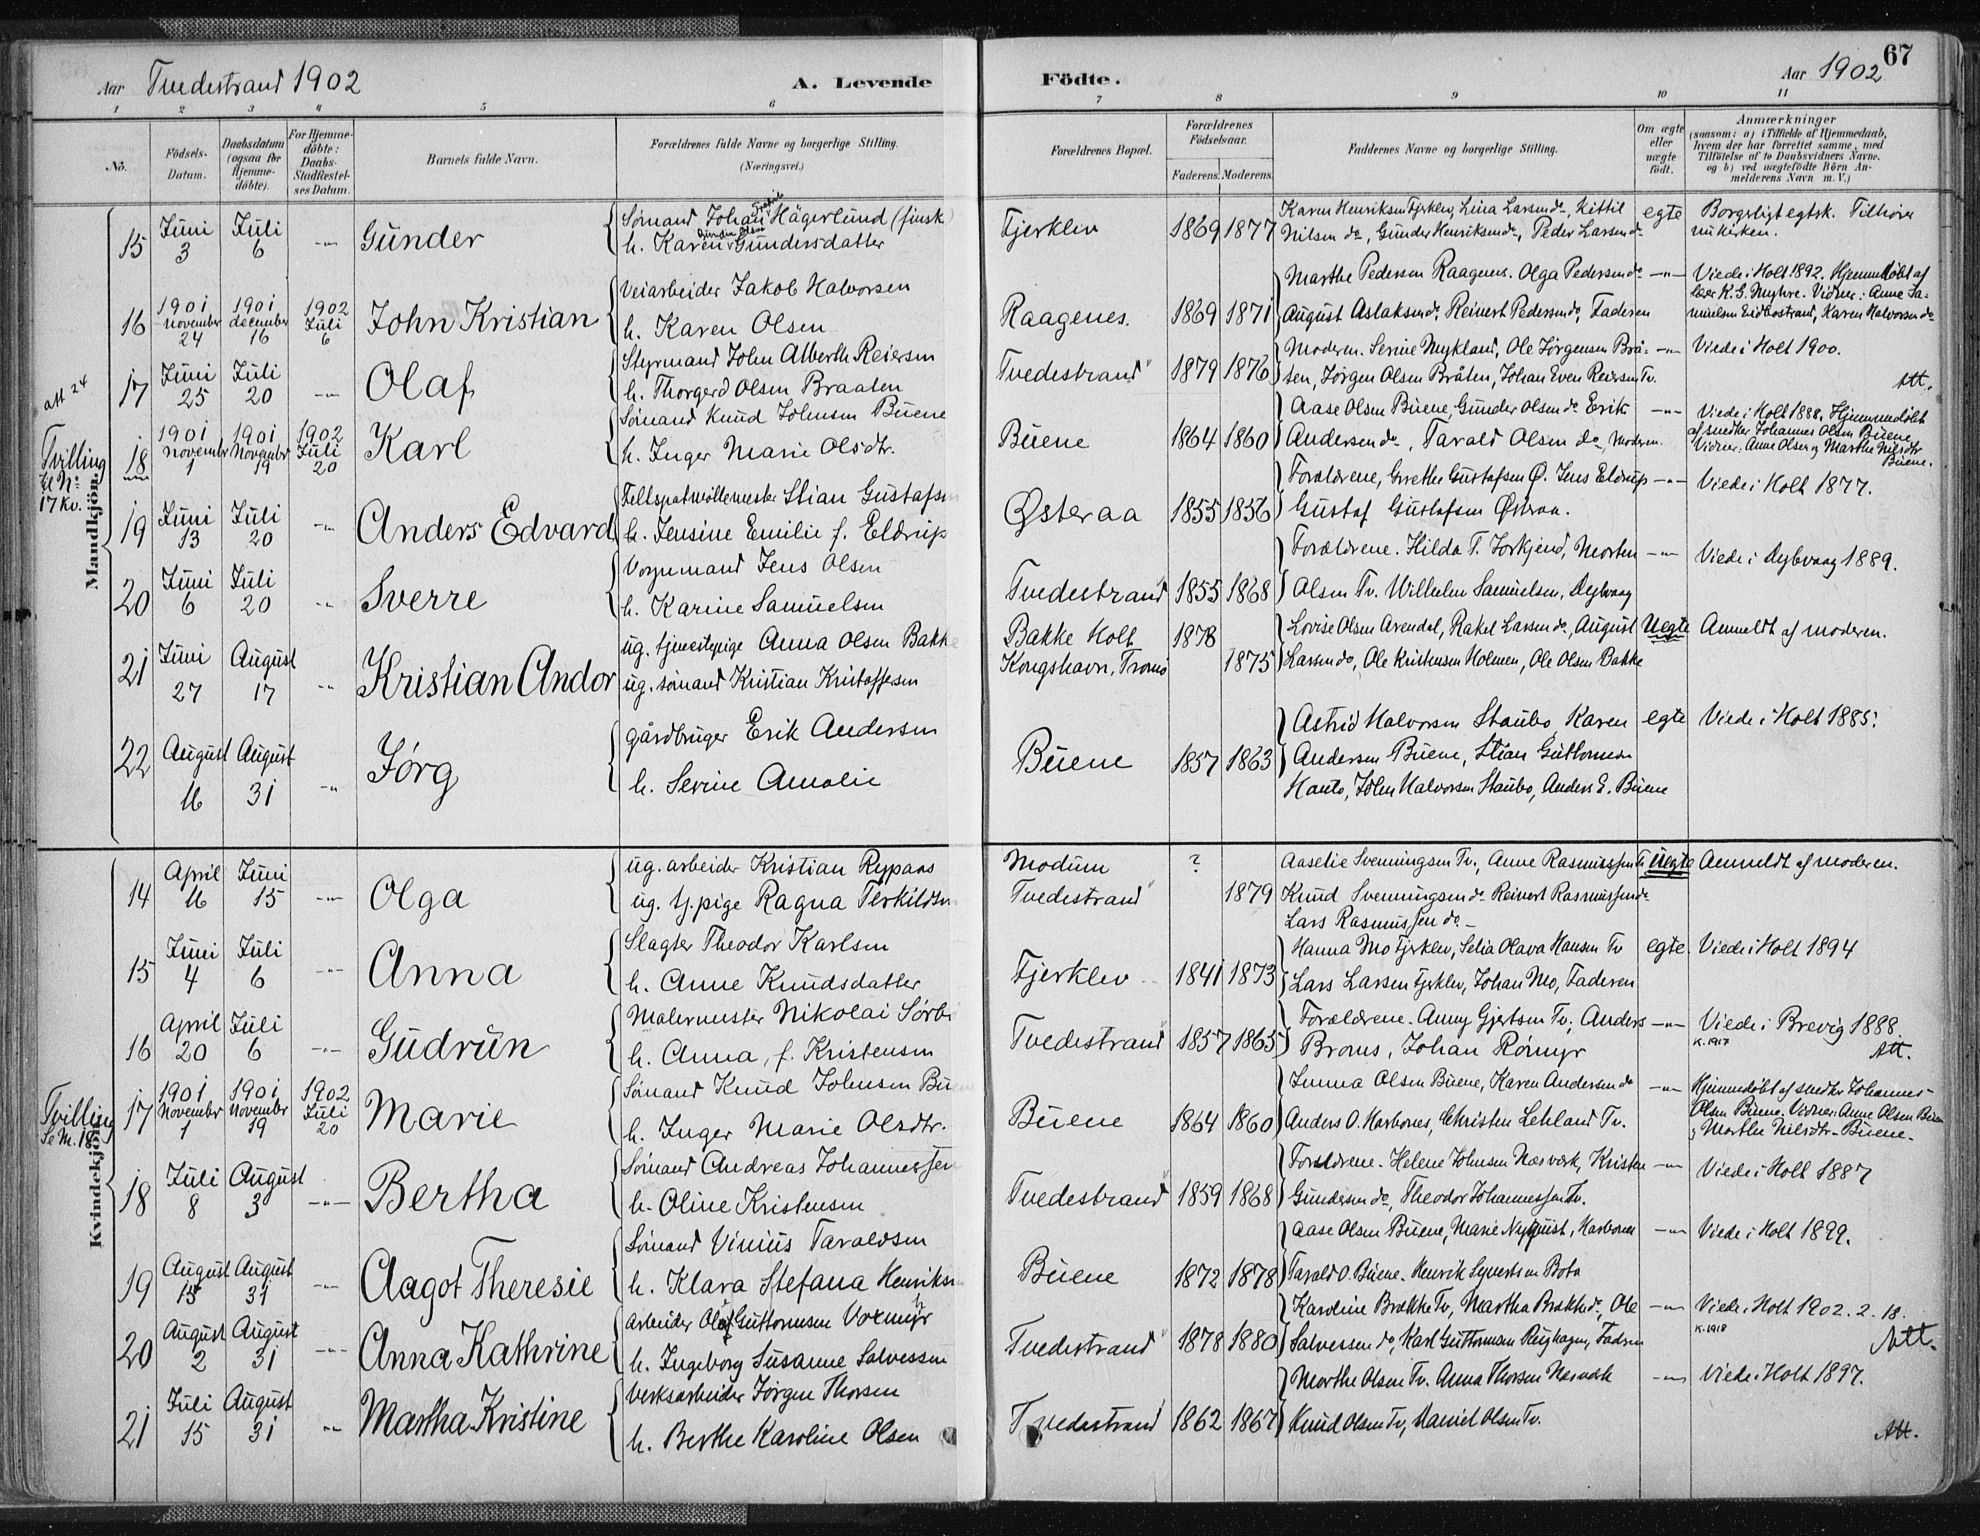 67
Aar Tvedestrand 1902
A. Levende Födte.
Aar 1902
1 2 3 4 5 6 7 8 9 10 11
No.
Födsels-Datum.
Daabsdatum (ogsaa for Hjemme-döbte).
For Hjemme-döbte: Daabs-Stadfæstel-ses Datum.
Barnets fulde Navn.
Forældrenes fulde Navne og borgerlige Stilling. (Næringsvei.)
Forældrenes Bopæl.
Forældrenes Födselsaar.
Faderens. Moderens.
Faddernes Navne og borgerlige Stilling.
Om ægte eller uægte födt.
Anmærkninger
(saasom: a) i Tilfælde af Hjemmedaab, hvem der har forrettet samme, med Tilföielse af to Daabsvidners Navne, og b) ved uægtefödte Börn An-melderens Navn m. V.)
Mandkjön.
15 Juni 3 Juli 6 -"- Gunder
Sømand Johan Hägerlund (finsk)
h. Karen Gundersdatter
Fjerklev 1869 1877
Karen Henriksen Fjerklev, Lina Larsen do, Kittil
Nilsen do, Gunder Henriksen do, Peder Larsen do
egte Borgerligt egtsk. Tilhører
nu kirken.
16 1901 November 24 1901 december 16 1902 Juli 6 John Kristian
Veiarbeider Jakob Halvorsen
h. Karen Olsen
Raagenes. 1869 1871
Marthe Pedersen Raagenes. Olga Pedersen do
August Aslaksen do, Reinert Pedersen do, Faderen
-"- Viede i Holt 1892. Hjemmedøbt af
lærer K. G. Myhre. Vidner: Anne Sa-
muelsen Eidbostrand, Karen Halvorsen do
att 24
17 Juni 25 Juli 20 -"- Olaf
Styrmand John Alberth Reiersen
h. Thorgerd Olsen Braaten
Tvedestrand 1879 1876
Moderen. Serine Mykland, Ole Jørgensen Brå-
ten, Jörgen Olsen Bråten, Johan Even Reiersen Tv.
-"- Viede i Holt 1900.
Att.
Tvilling
til No
17 Kv.
18 1901 Novembr 1 1901 Novembr 19 1902 Juli 20 Karl
Sømand Knud Johnsen Buene
h. Inger Marie Olsdtr.
Buene 1864 1860
Aase Olsen Buene, Gunder Olsen do Erik
Andersen do, Tarald Olsen do, Moderen.
-"- Viede i Holt 1888. Hjemmedöbt
af snedker Johannes Olsen Buene.
Vidner: Anne Olsen og Marthe Nilsdtr
Buene.
19 Juni 13 Juli 20 -"- Anders Edvard
Feltspatmøllemester Stian Gustafsen
h. Jensine Emilie f. Eldrup
Østeraa 1855 1856
Forældrene, Grethe Gustafsen Ø. Jens Eldrup
Gustaf Gustafsen Østeraa.
-"- Viede i Holt 1877.
20 Juni 6 Juli 20 -"- Sverre
Vognmand Jens Olsen
h. Karine Samuelsen
Tvedestrand 1855 1868
Forældrene. Hilda T. Torkjend, Morten
Olsen Tv. Wilhelm Samuelsen, Dybvaag
-"- Viede i Dybvaag 1889.
21 Juni 27 August 17 -"- Kristian Andor
ug. tjenestepige Anna Olsen Bakke
ug. sømand Kristian Kristoffesen
Bakke Holt 1878
Kongshavn, Tromø 1875
Lovise Olsen Arendal, Rakel Larsen do, August
Larsen do, Ole Kristensen Holmen, Ole Olsen Bakke
Uegte Anmeldt af moderen.
22 August 16 August 31 -"- Jörg
gårdbruger Erik Andersen
h. Serine Amalie
Buene 1857 1863
Astrid Halvorsen Staubo, Karen
Andersen Buene, Stian Guthormsen
Hauto, John Halvorsen Staubo, Anders E. Buene
egte Viede i Holt 1885.
Kvindekjön.
14 April 16 Juni 15 -"- Olga
ug. arbeider Kristian Rypaas
ug. tj. pige Ragna Terkildsen
Modum ?
Tvedestrand 1879
Aaselie Svenningsen Tv., Anne Rasmussen Tv
Knud Svenningsen do Reinert Rasmussen do
Lars Rasmussen do
Uegte Anmeldt af moderen.
15 Juni 4 Juli 6 -"- Anna
Slagter Theodor Karlsen
h. Anne Knudsdatter
Fjerklev 1841 1873
Hanna Mo Fjerklev, Selia Olava Hansen Tv
Lars Larsen Fjerklev, Johan Mo, Faderen
egte. Viede i Holt 1894
16 April 20 Juli 6 -"- Gudrün
Malermester Nikolai Sørbø
h. Anna, f. Kristensen
Tvedestrand 1857 1865
Forældrene. Anny Gjertsen Tv., Anders
Broms, Johan Römyr
-"- Viede i Brevig 1888.
K. 1917
Att.
Tvilling
Se M. 18
17 1901 November 1 1901 November 19 1902 Juli 20 Marie
Sømand Knud Johnsen Buene
h. Inger Marie Olsdtr.
Buene 1864 1860
Emma Olsen Buene, Karen Andersen do
Anders O. Narbones, Christen Lehland Tv.
-"- Hjemmedöbt af snedker Johannes
Olsen Buene. Vidner: Anne Olsen Buene
og Marthe Nilsdtr. Buene.
18 Juli 8 August 3 -"- Bertha
Sømand Andreas Johannessen
h. Oline Kristensen
Tvedestrand 1859 1868
Forældrene. Helene Johnsen Næsværk, Kristen
Gundersen do, Theodor Johannessen Tv.
-"- Viede i Holt 1887
19 August 15 August 31 -"- Aagot Theresie
Sømand Vinius Taraldsen
h. Klara Stefana Henriksen
Buene 1872 1878
Aase Olsen Buene, Marie Nyquist, Narbones
Tarald O. Buene. Henrik Syvertsen Bota
-"- Viede i Holt 1899.
20 August 2 August 31 -"- Anna Kathrine
Arbeider Olaf Guttormsen Voxmyr
h. Ingeborg Susanne Salvessen
Tvedestrand 1878 1880
Karoline Brække Tv, Martha Brække do, Ole
Salvessen do, Karl Guttormsen Rughagen, Faderen
-"- Viede i Holt 1902. 2. 18.
K. 1918
Att.
21 Juli 15 August 31 -"- Martha Kristine
Verksarbeider Jørgen Thorsen
h. Berthe Karoline Olsen
Tvedestrand 1862 1867
Marthe Olsen Tv. Anna Thorsen Næsværk
Knud Olsen Tv, Daniel Olsen Tv.
-"- Viede i Holt 1897.
Att.